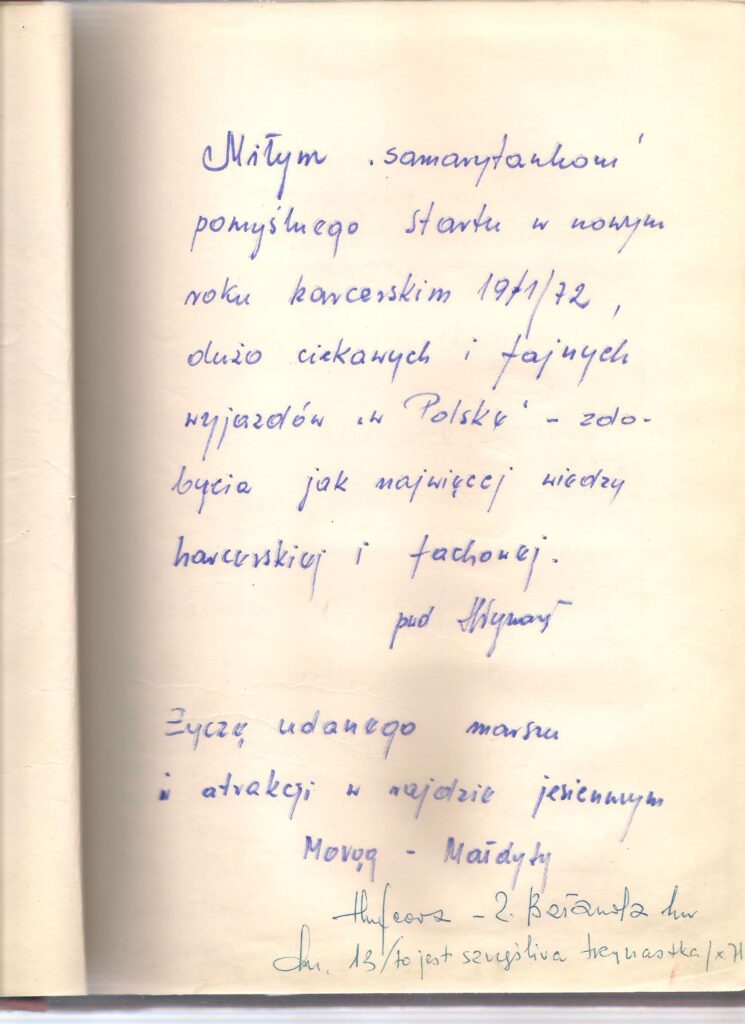 Miłym „samarytankom”
pomyślnego startu w nowym
roku harcerskim 1971/72,
dużo ciekawych i fajnych
wyjazdów „w Polskę” – zdo-
bycia jak najwięcej wiedzy
harcerskiej i fachowej.
pwd
Życzę udanego marszu
i atrakcji w rajdzie jesiennym
Morąg – Małdyty
Hufcowa – Z. hm
dn. 13/to jest szczęśliwa trzynastka/x.71